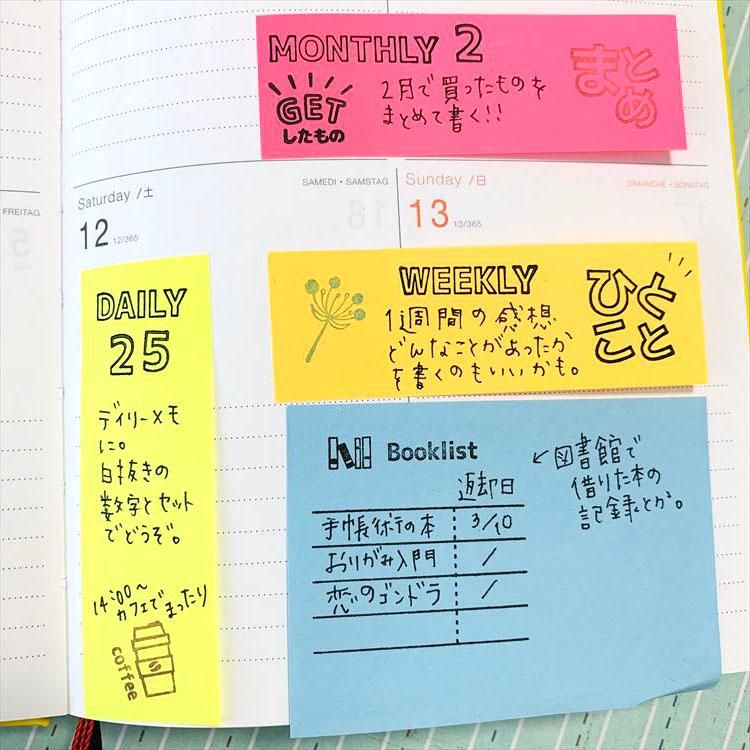 MONTHLY 2
GET
したもの
2月で買ったものを
まとめて書く!!
まとめ
FREITAG
Saturday /土
SAMEDI・SAMSTAG
12 12/365
Sunday /日
DIMANCHE・SONNTAG
13 13/365
DAILY
25
デイリーメモ
に。
白抜きの
数字とセット
でどうぞ。
14:00～
カフェでまったり
coffee
WEEKLY
1週間の感想
どんなことがあったか
を書くのもいいかも。
ひと
こと
Booklist
返却日
手帳術の本 3/10
おりがみ入門 /
恋のゴンドラ /
↙図書館で
借りた本の
記録とか。